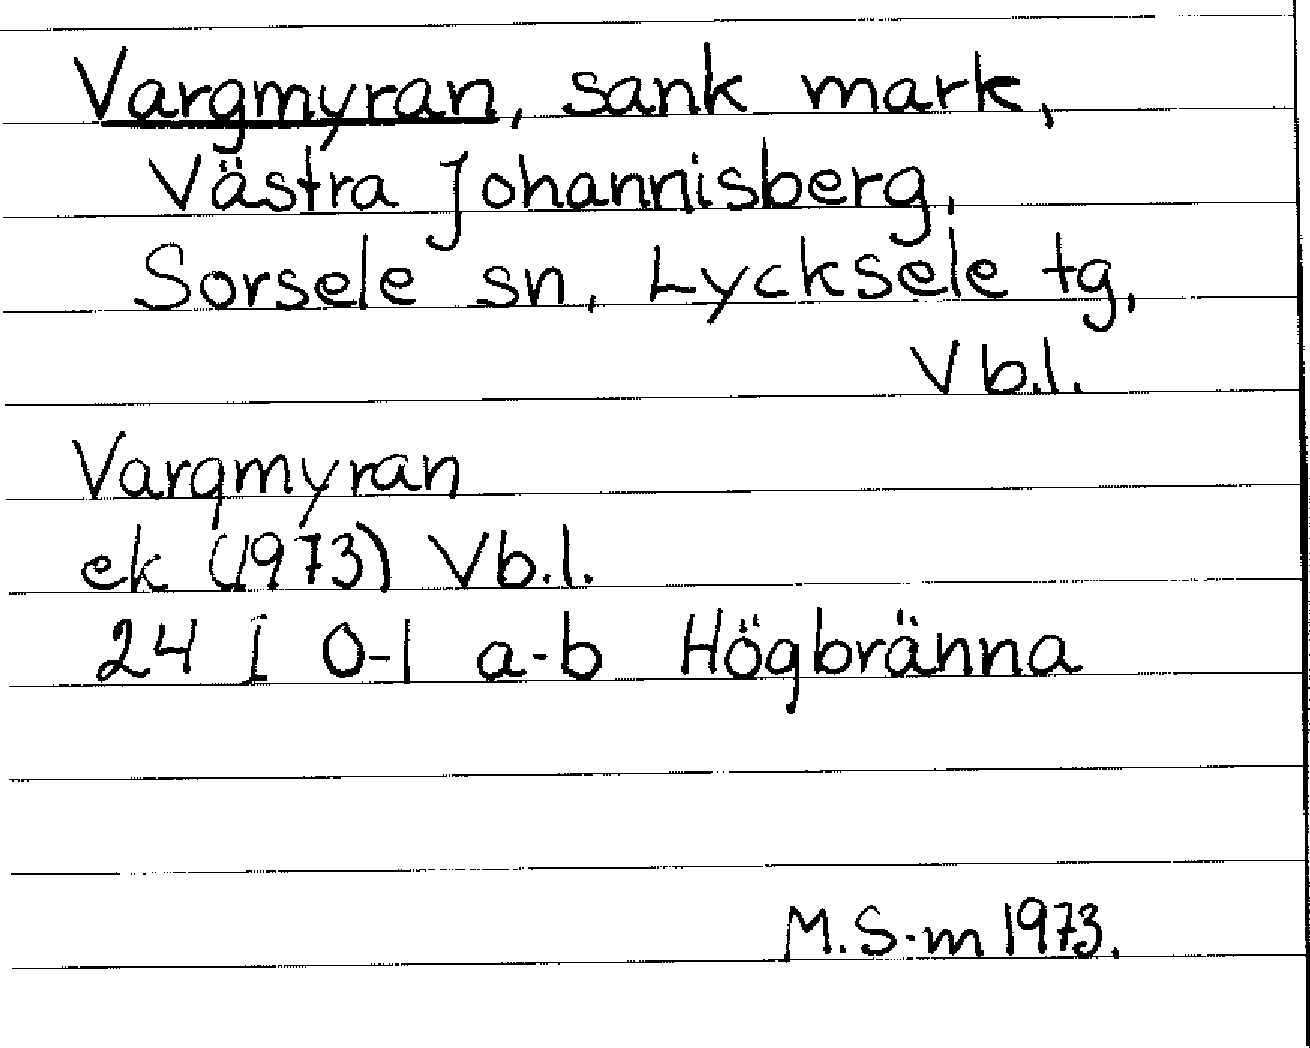 Vargmyran, sank mark,
Västra Johannisberg,
Sorsele sn, Lycksele tg,
Vb.l.
Vargmyran
ek (1973) Vb.l.
24 I 0-1 a-b Högbränna
M.S-m 1973.